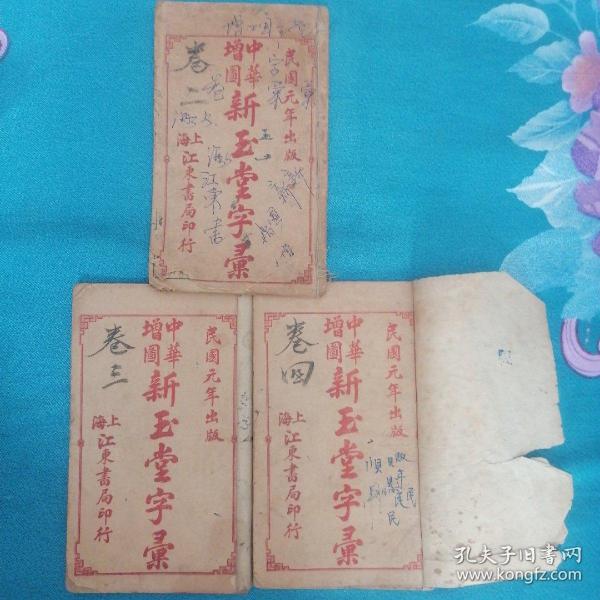 民國元年出版
中華
增圖
新玉堂字彙
上海
江東書局印行
卷二
民國元年出版
中華
增圖
新玉堂字彙
上海
江東書局印行
卷三
民國元年出版
中華
增圖
新玉堂字彙
上海
江東書局印行
卷四
孔夫子旧书网
www.kongfz.com